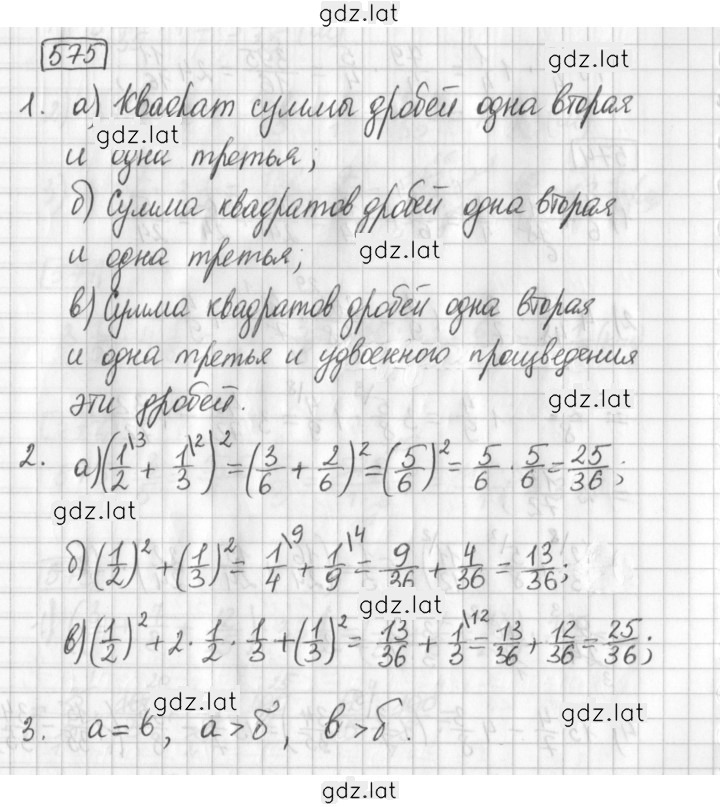 gdz.lat
575
gdz.lat
1. а) Квадрат суммы дробей одна вторая
gdz.lat
и одна третья;
б) Сумма квадратов дробей одна вторая
и одна третья;
gdz.lat
в) Сумма квадратов дробей одна вторая
и одна третья и удвоенного произведения
эти дробей.
gdz.lat
2. а) (1/2\3 + 1/3\2)² = (3/6 + 2/6)² = (5/6)² = 5/6 · 5/6 = 25/36;
gdz.lat
б) (1/2)² + (1/3)² = 1/4\9 + 1/9\4 = 9/36 + 4/36 = 13/36;
gdz.lat
в) (1/2)² + 2 · 1/2 · 1/3 + (1/3)² = 13/36 + 1/3\12 = 13/36 + 12/36 = 25/36;
gdz.lat
gdz.lat
3. а = в, а > б, в > б.
gdz.lat